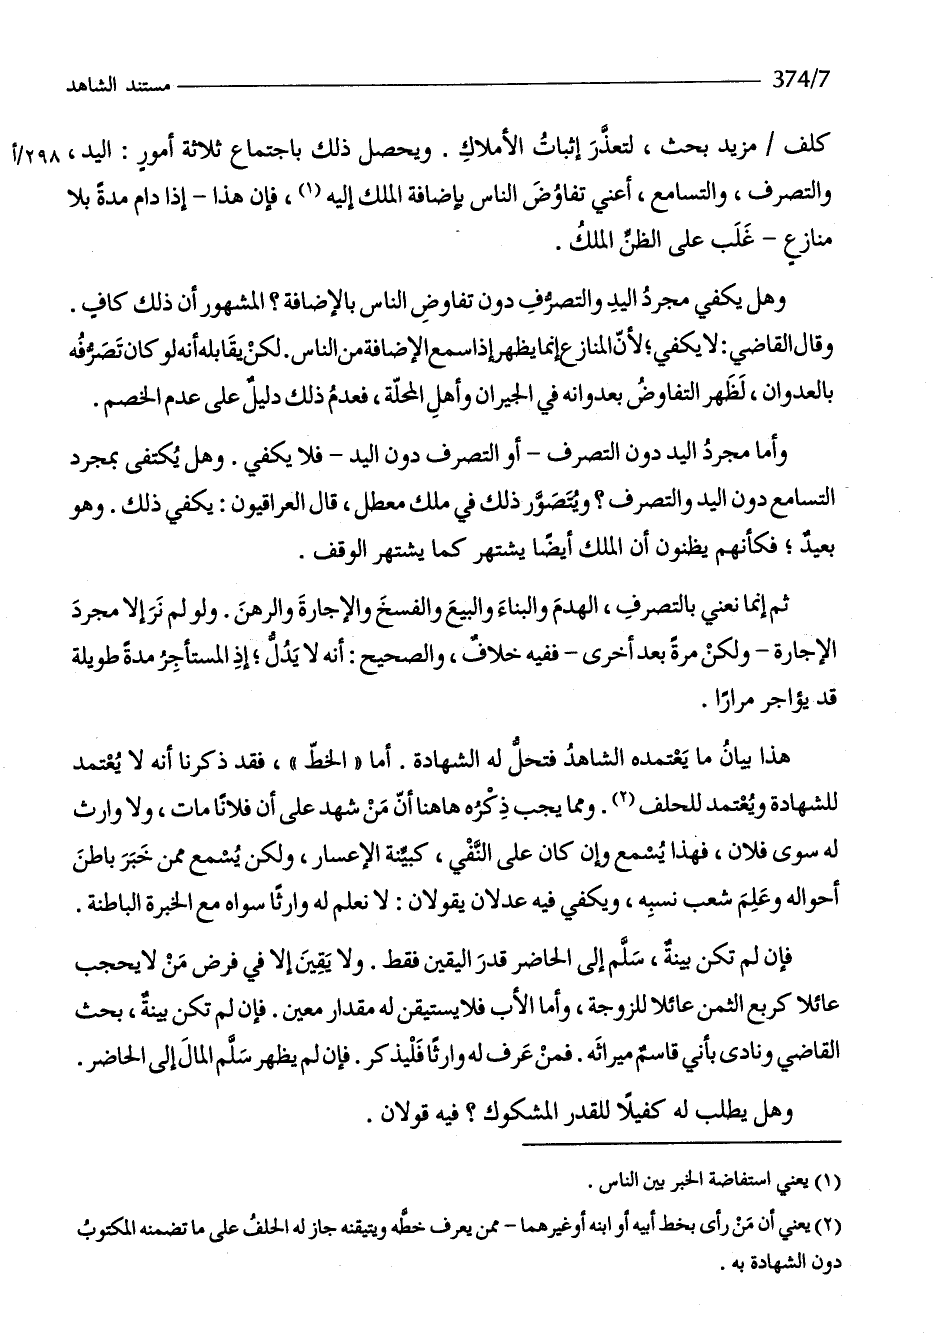 374/7 مستند الشاهد
كلف / مزيد بحث ، لتعذَّرَ إثباتُ الأملاكِ . ويحصل ذلك باجتماع ثلاثة أمورٍ : اليد ، ٢٩٨/أ
والتصرف ، والتسامع ، أعني تفاوُضَ الناس بإضافة الملك إليه (١) ، فإن هذا – إذا دام مدةً بلا
منازعٍ – غَلَب على الظنِّ الملكُ .
وهل يكفي مجردُ اليدِ والتصرُّفِ دون تفاوضِ الناس بالإضافة ؟ المشهور أن ذلك كافٍ .
وقال القاضي : لا يكفي ؛ لأنّ المنازع إنما يظهر إذا سمع الإضافة من الناس . لكنْ يقَابله أنه لو كان تَصَرُّفُه
بالعدوان ، لَظَهر التفاوضُ بعدوانه في الجيران وأهلِ المحلّة ، فعدمُ ذلك دليلٌ على عدم الخصم .
وأما مجردُ اليد دون التصرف – أو التصرف دون اليد – فلا يكفي . وهل يُكتفى بمجرد
التسامع دون اليد والتصرف ؟ ويُتَصَوَّر ذلك في ملك معطل ، قال العراقيون : يكفي ذلك . وهو
بعيدٌ ؛ فكأنهم يظنون أن الملك أيضًا يشتهر كما يشتهر الوقف .
ثم إنما نعني بالتصرفِ ، الهدمَ والبناءَ والبيعَ والفسخَ والإجارةَ والرهنَ . ولو لم نَرَ إلا مجردَ
الإجارة – ولكنْ مرةً بعد أخرى – ففيه خلافٌ ، والصحيح : أنه لا يَدُلُّ ؛ إذِ المستأجِرُ مدةً طويلة
قد يؤاجر مرارًا .
هذا بيانُ ما يَعْتمده الشاهدُ فتحلُّ له الشهادة . أما « الخطّ » ، فقد ذكرنا أنه لا يُعْتمد
للشهادة ويُعْتمد للحلف (٢) . ومما يجب ذِكْرُه هاهنا أنّ مَنْ شهد على أن فلانًا مات ، ولا وارث
له سوى فلان ، فهذا يُسْمع وإن كان على النَّفْي ، كبيِّنة الإعسار ، ولكن يُسْمع ممن خَبَرَ باطنَ
أحواله وعَلِمَ شعب نسبِه ، ويكفي فيه عدلان يقولان : لا نعلم له وارثًا سواه مع الخبرة الباطنة .
فإن لم تكن بينةٌ ، سَلَّم إلى الحاضر قدرَ اليقين فقط . ولا يَقِينَ إلا في فرض مَنْ لا يحجب
عائلا كربع الثمن عائلا للزوجة ، وأما الأب فلا يستيقن له مقدار معين . فإن لم تكن بينةٌ ، بحث
القاضي ونادى بأني قاسمٌ ميراثَه . فمنْ عَرف له وارثًا فَلْيذكر . فإن لم يظهر سَلَّم المالَ إلى الحاضر .
وهل يطلب له كفيلًا للقدر المشكوك ؟ فيه قولان .
(١) يعني استفاضة الخبر بين الناس .
(٢) يعني أن مَنْ رأى بخط أبيه أو ابنه أو غيرهما – ممن يعرف خطَّه ويتيقنه جاز له الحلفُ على ما تضمنه المكتوبُ
دون الشهادة به .